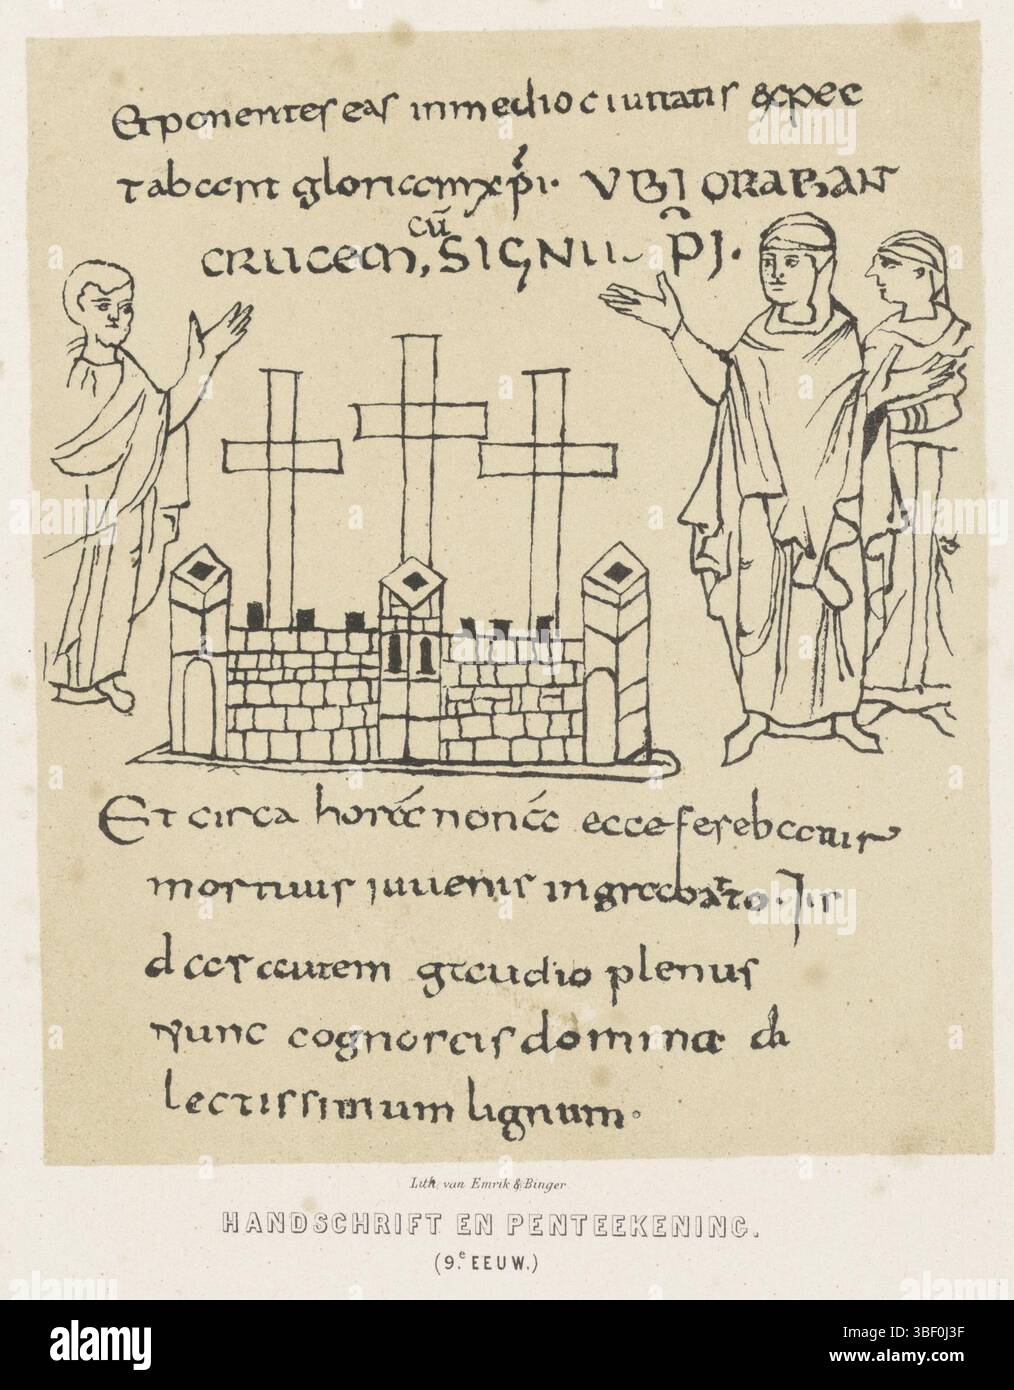 Et ponentes eas inmedio ciuitatis & expec
tabant gloriam xp̄i. VBI ORABANT
CRUCEM, cū SIGNU P̄I.
Et circa horā nonā ecce ferebatur
mortuus iuuenis in grabatto. Iu
das autem gaudio plenus
Nunc cognoscis domine di
lectissimum lignum.
Lith. van Emrik & Binger
HANDSCHRIFT EN PENTEEKENING.
(9.e EEUW.)
alamy
Image ID: 3BF0J3F
www.alamy.com